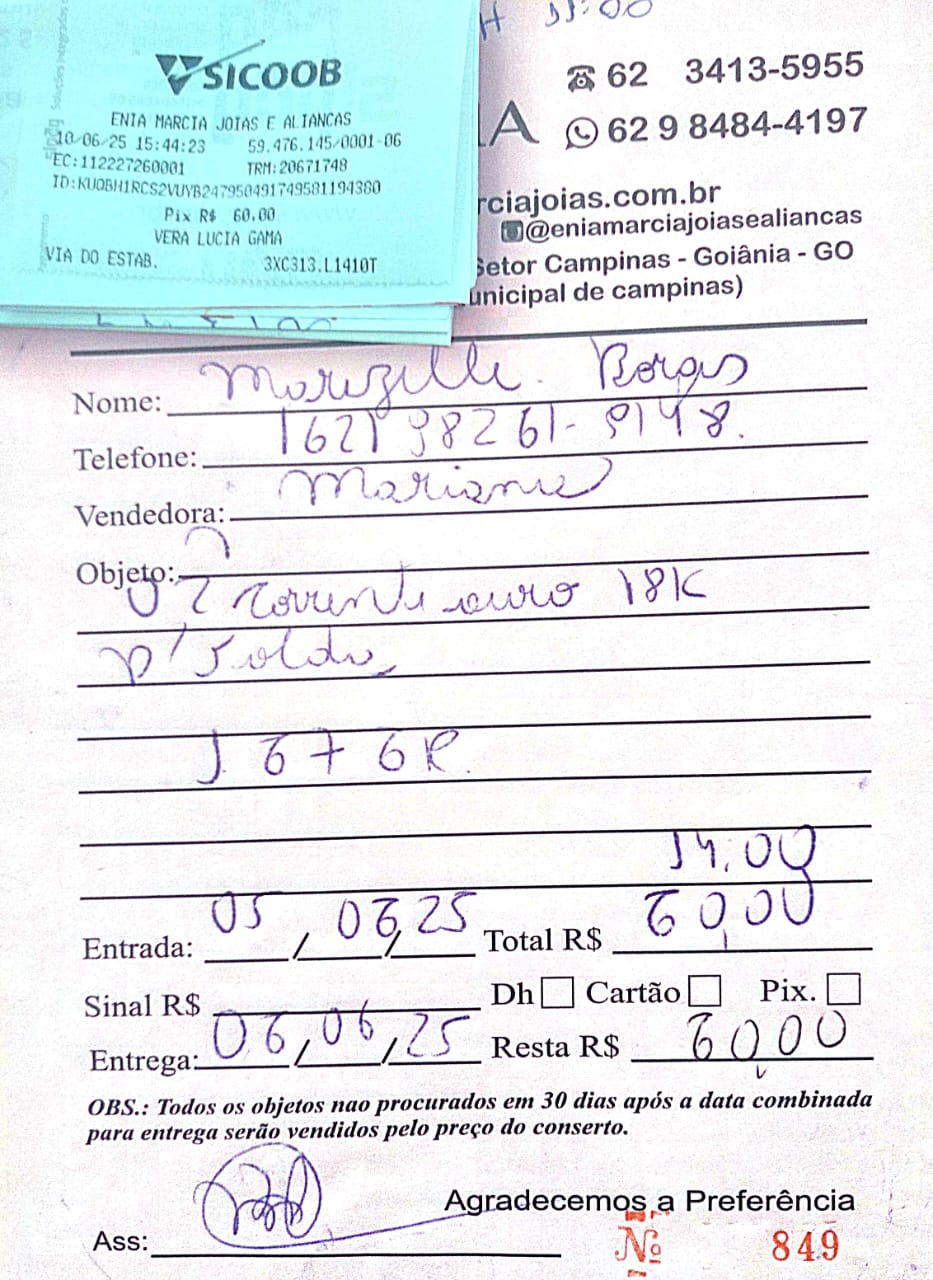 SICOOB
ENIA MARCIA JOIAS E ALIANCAS
10/06/25 15:44:23 59.476.145/0001-06
EC:112227260001 TRM:20671748
ID:KUOBH1RCS2VUYB247950491749581194380
Pix R$ 60.00
VERA LUCIA GAMA
VIA DO ESTAB. 3XC313.L1410T
62 3413-5955
IA 62 9 8484-4197
rciajoias.com.br
@eniamarciajoiasealiancas
Setor Campinas - Goiânia - GO
unicipal de campinas)
Nome: Borges
Telefone: (62) 98261-9148.
Vendedora: Mariane
Objeto:
02 Corrente ouro 18K
p/ Solda
14,00
Entrada: 05/06/25 Total R$ 60,00
Sinal R$ Dh Cartão Pix.
Entrega: 06/06/25 Resta R$ 60,00
OBS.: Todos os objetos nao procurados em 30 dias após a data combinada
para entrega serão vendidos pelo preço do conserto.
Agradecemos a Preferência
Ass: Nº 849